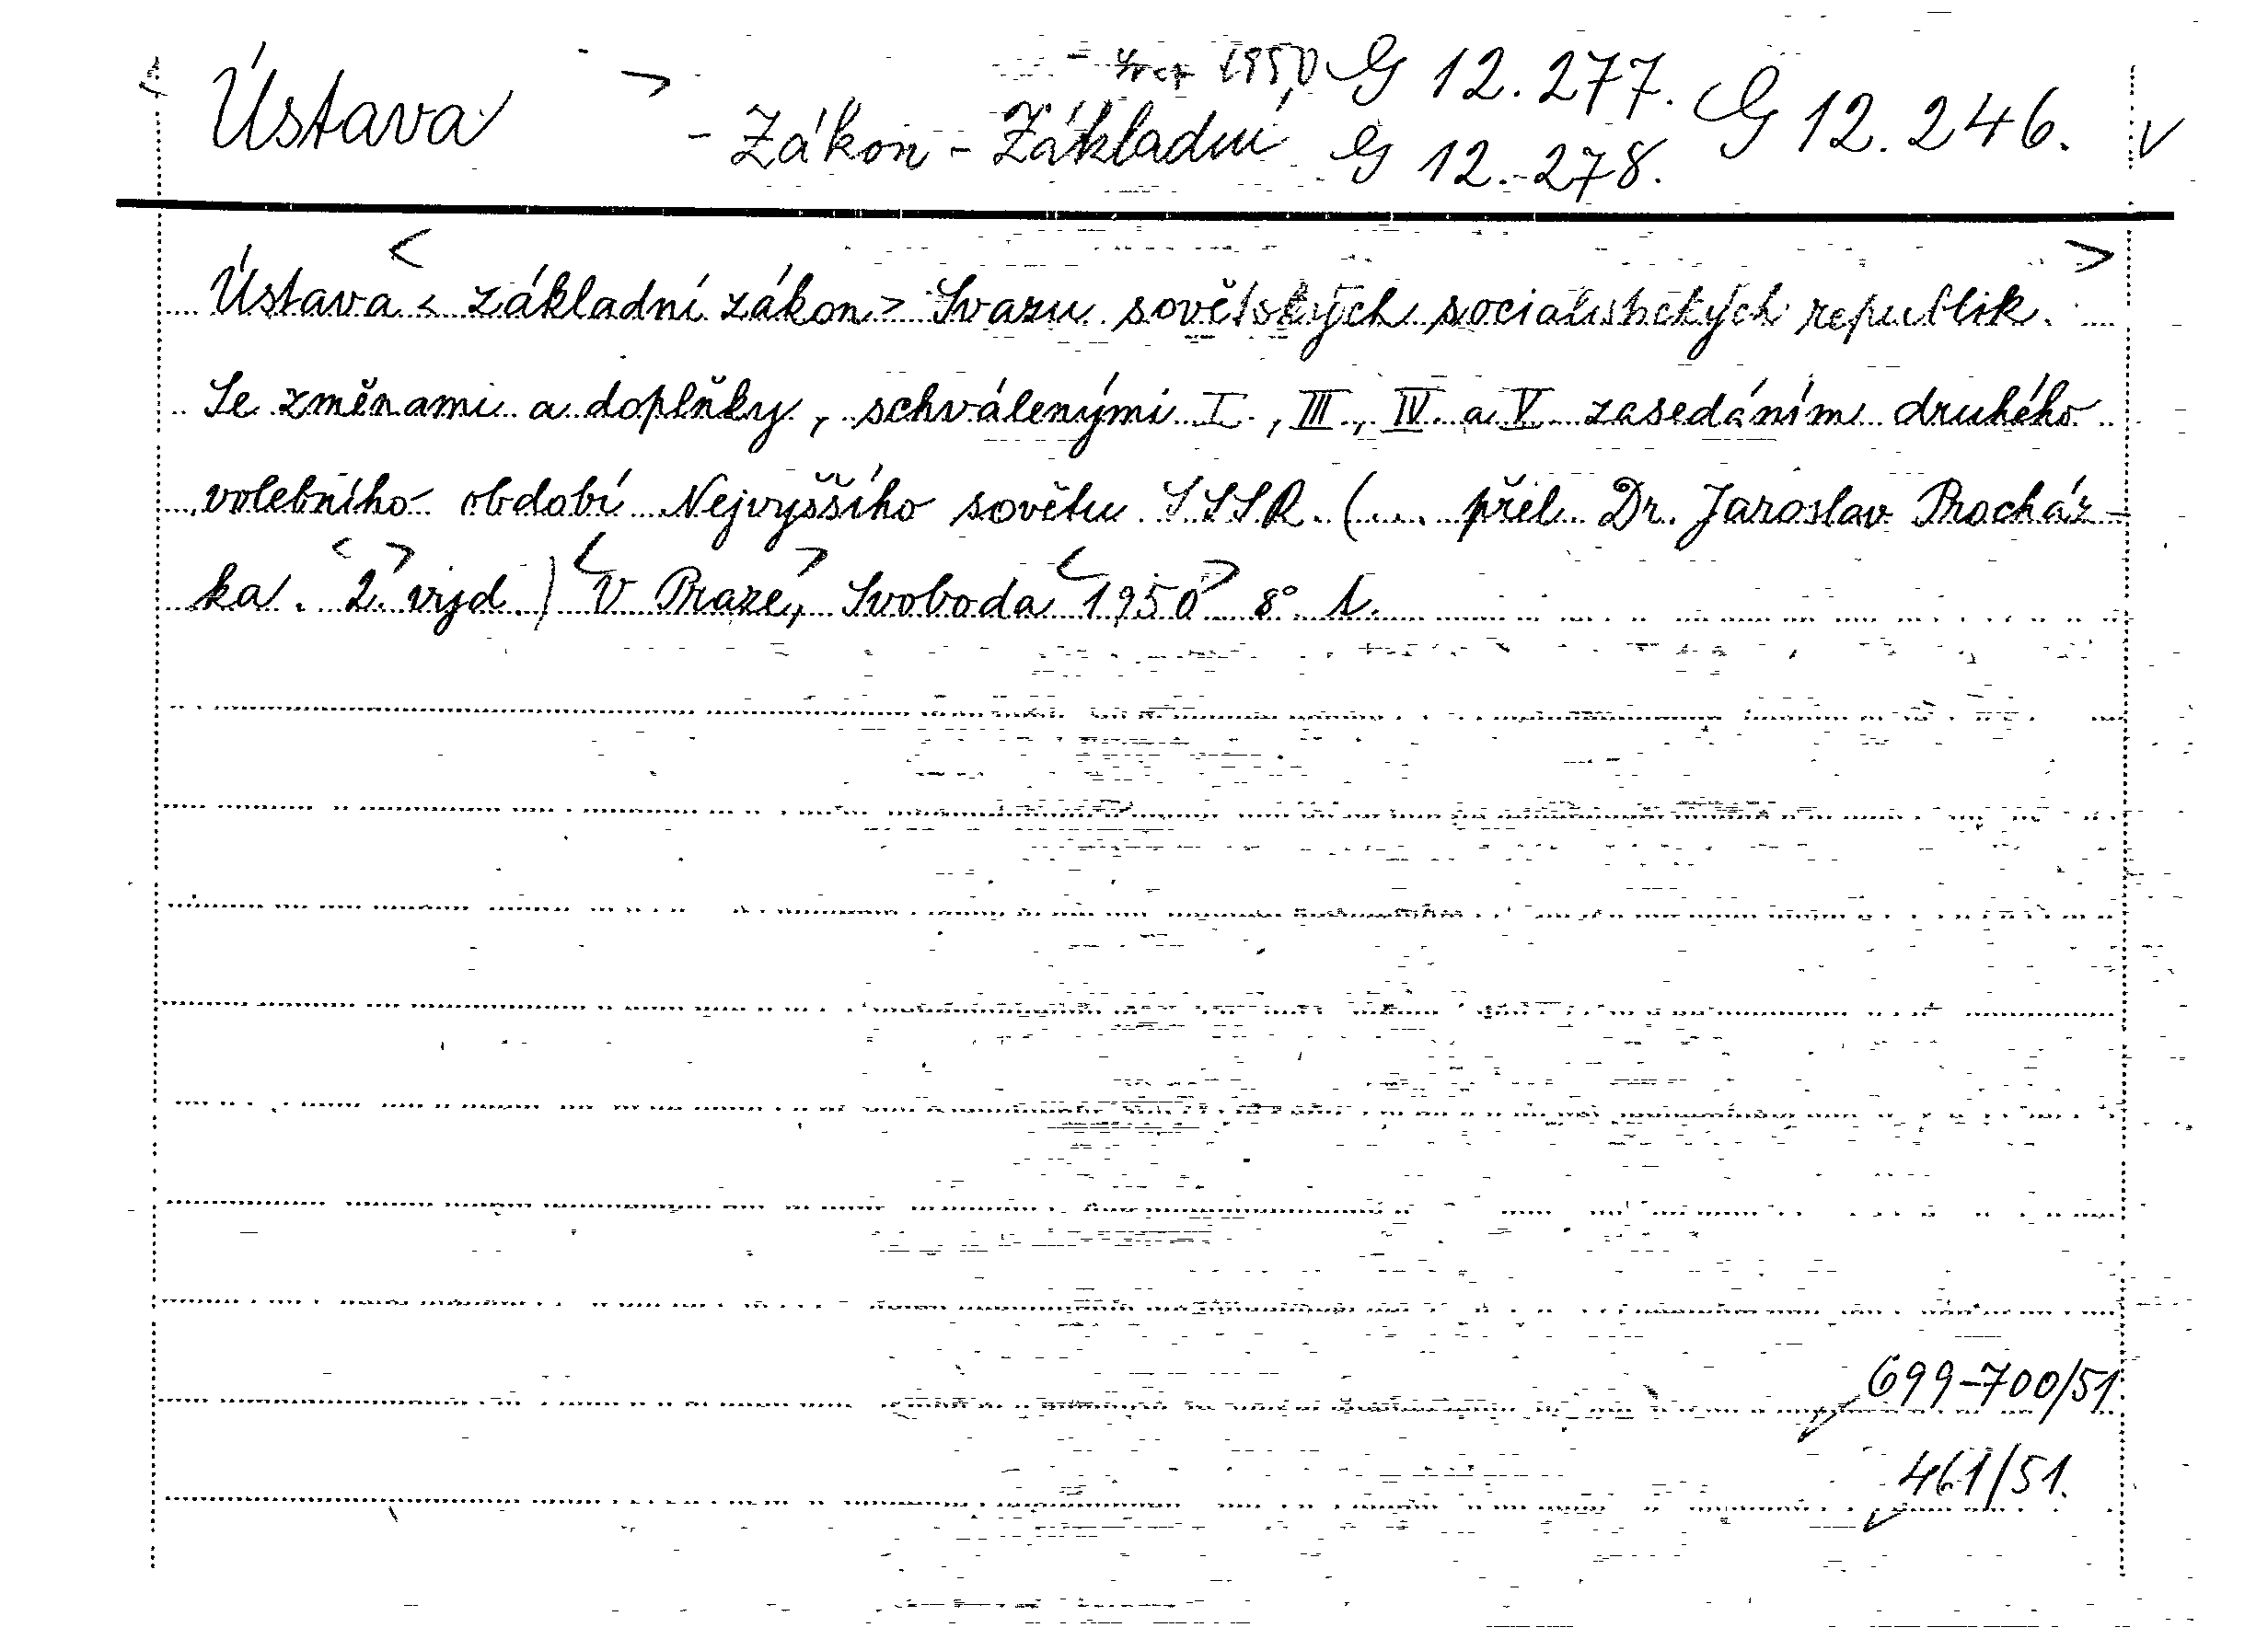 Ústava - Zákon - Základní
1950 G 12.277. G 12.246.
G 12.278.
Ústava < základní zákon > Svazu sovětských socialistických republik.
Se změnami a doplňky, schválenými I., III., IV. a V. zasedáním druhého
volebního období Nejvyššího sovětu SSSR. (... přel. Dr. Jaroslav Procház-
ka. 2. vyd.) V Praze, Svoboda 1950 8° 1.
699-700/51
461/51.